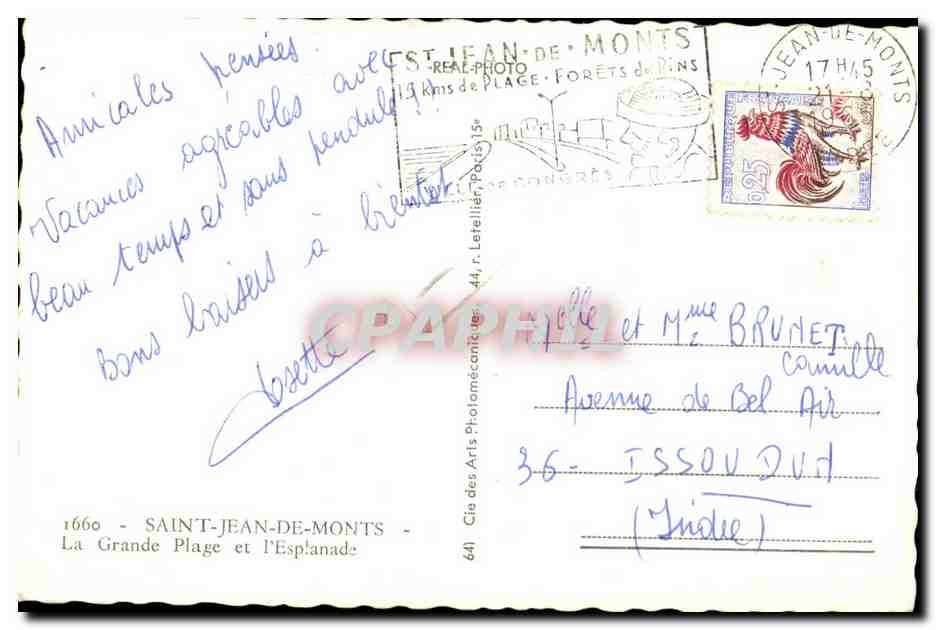 Amicales pensées.
Vacances agréables avec
beau temps et sans pendule!!
Bons baisers à bientôt
Josette
1660 - SAINT-JEAN-DE-MONTS -
La Grande Plage et l'Esplanade
641 Cie des Arts Photomécaniques, 44, r. Letellier, Paris-15e
ST JEAN-DE-MONTS
REAL-PHOTO
15 Kms de PLAGE-FORÊTS de PINS
DE CONGRÈS
JEAN-DE-MONTS
17 H 45
21-8
REPUBLIQUE FRANÇAISE
0,25
POSTES
CPAPHIL
Melle et Mme BRUNET
Camille
Avenue de Bel Air
36- ISSOUDUN
(Indre)